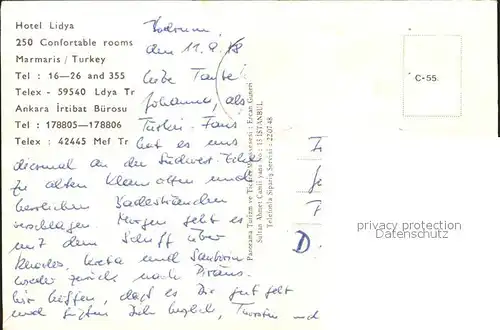 Hotel Lidya
250 Confortable rooms
Marmaris / Turkey
Tel : 16—26 and 355
Telex - 59540 Ldya Tr
Ankara İrtibat Bürosu
Tel : 178805—178806
Telex : 42445 Mef Tr
Bodrum,
den 11.9.78
Liebe Tante
Johanna, als
Türkei-Fans
hat es uns
diesmal an die Südwest-Ecke
zu alten und
herrlichen Badesträndchen
verschlagen. Morgen geht es
mit dem Schiff über
Rhodos, Kreta und Santorin
wieder zurück nach Piräus.
Wir hoffen, daß es Dir gut geht
und grüßen Dich herzlich, Thorsten und
Panorama Turizm ve Ticaret Müessesesi : Ercan Güneri
Sultan Ahmet Camii yanı No : 13 İSTANBUL
Telefonla Sipariş Servisi : 220748
C-55
D
privacy protection
Datenschutz